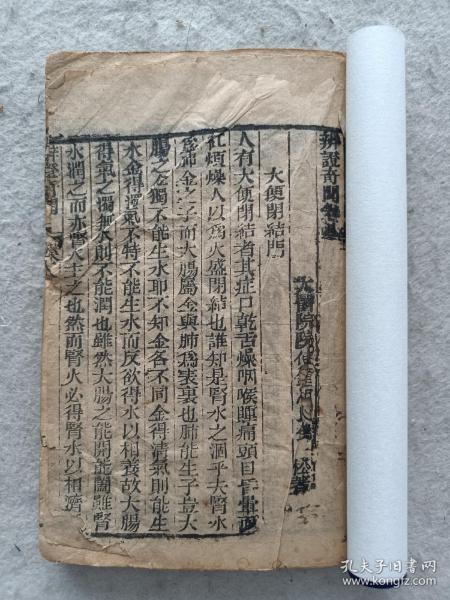 辨證奇聞卷
大便閉結門
人有大便閉結者其症口乾舌燥咽喉腫痛頭目昏暈面
紅煩燥人以爲火盛閉結也誰知是腎水之涸乎夫腎水
爲肺金之子而大腸屬金與肺爲表裏也肺能生子豈大
腸之金獨不能生水耶不知金各不同金得清氣則能生
水金得濁氣不特不能生水而反欲得水以相養故大腸
得氣之濁無水則不能潤也雖然大腸之能開能闔雖腎
水潤之而亦腎火主之也然而腎火必得腎水以相濟
孔夫子旧书网